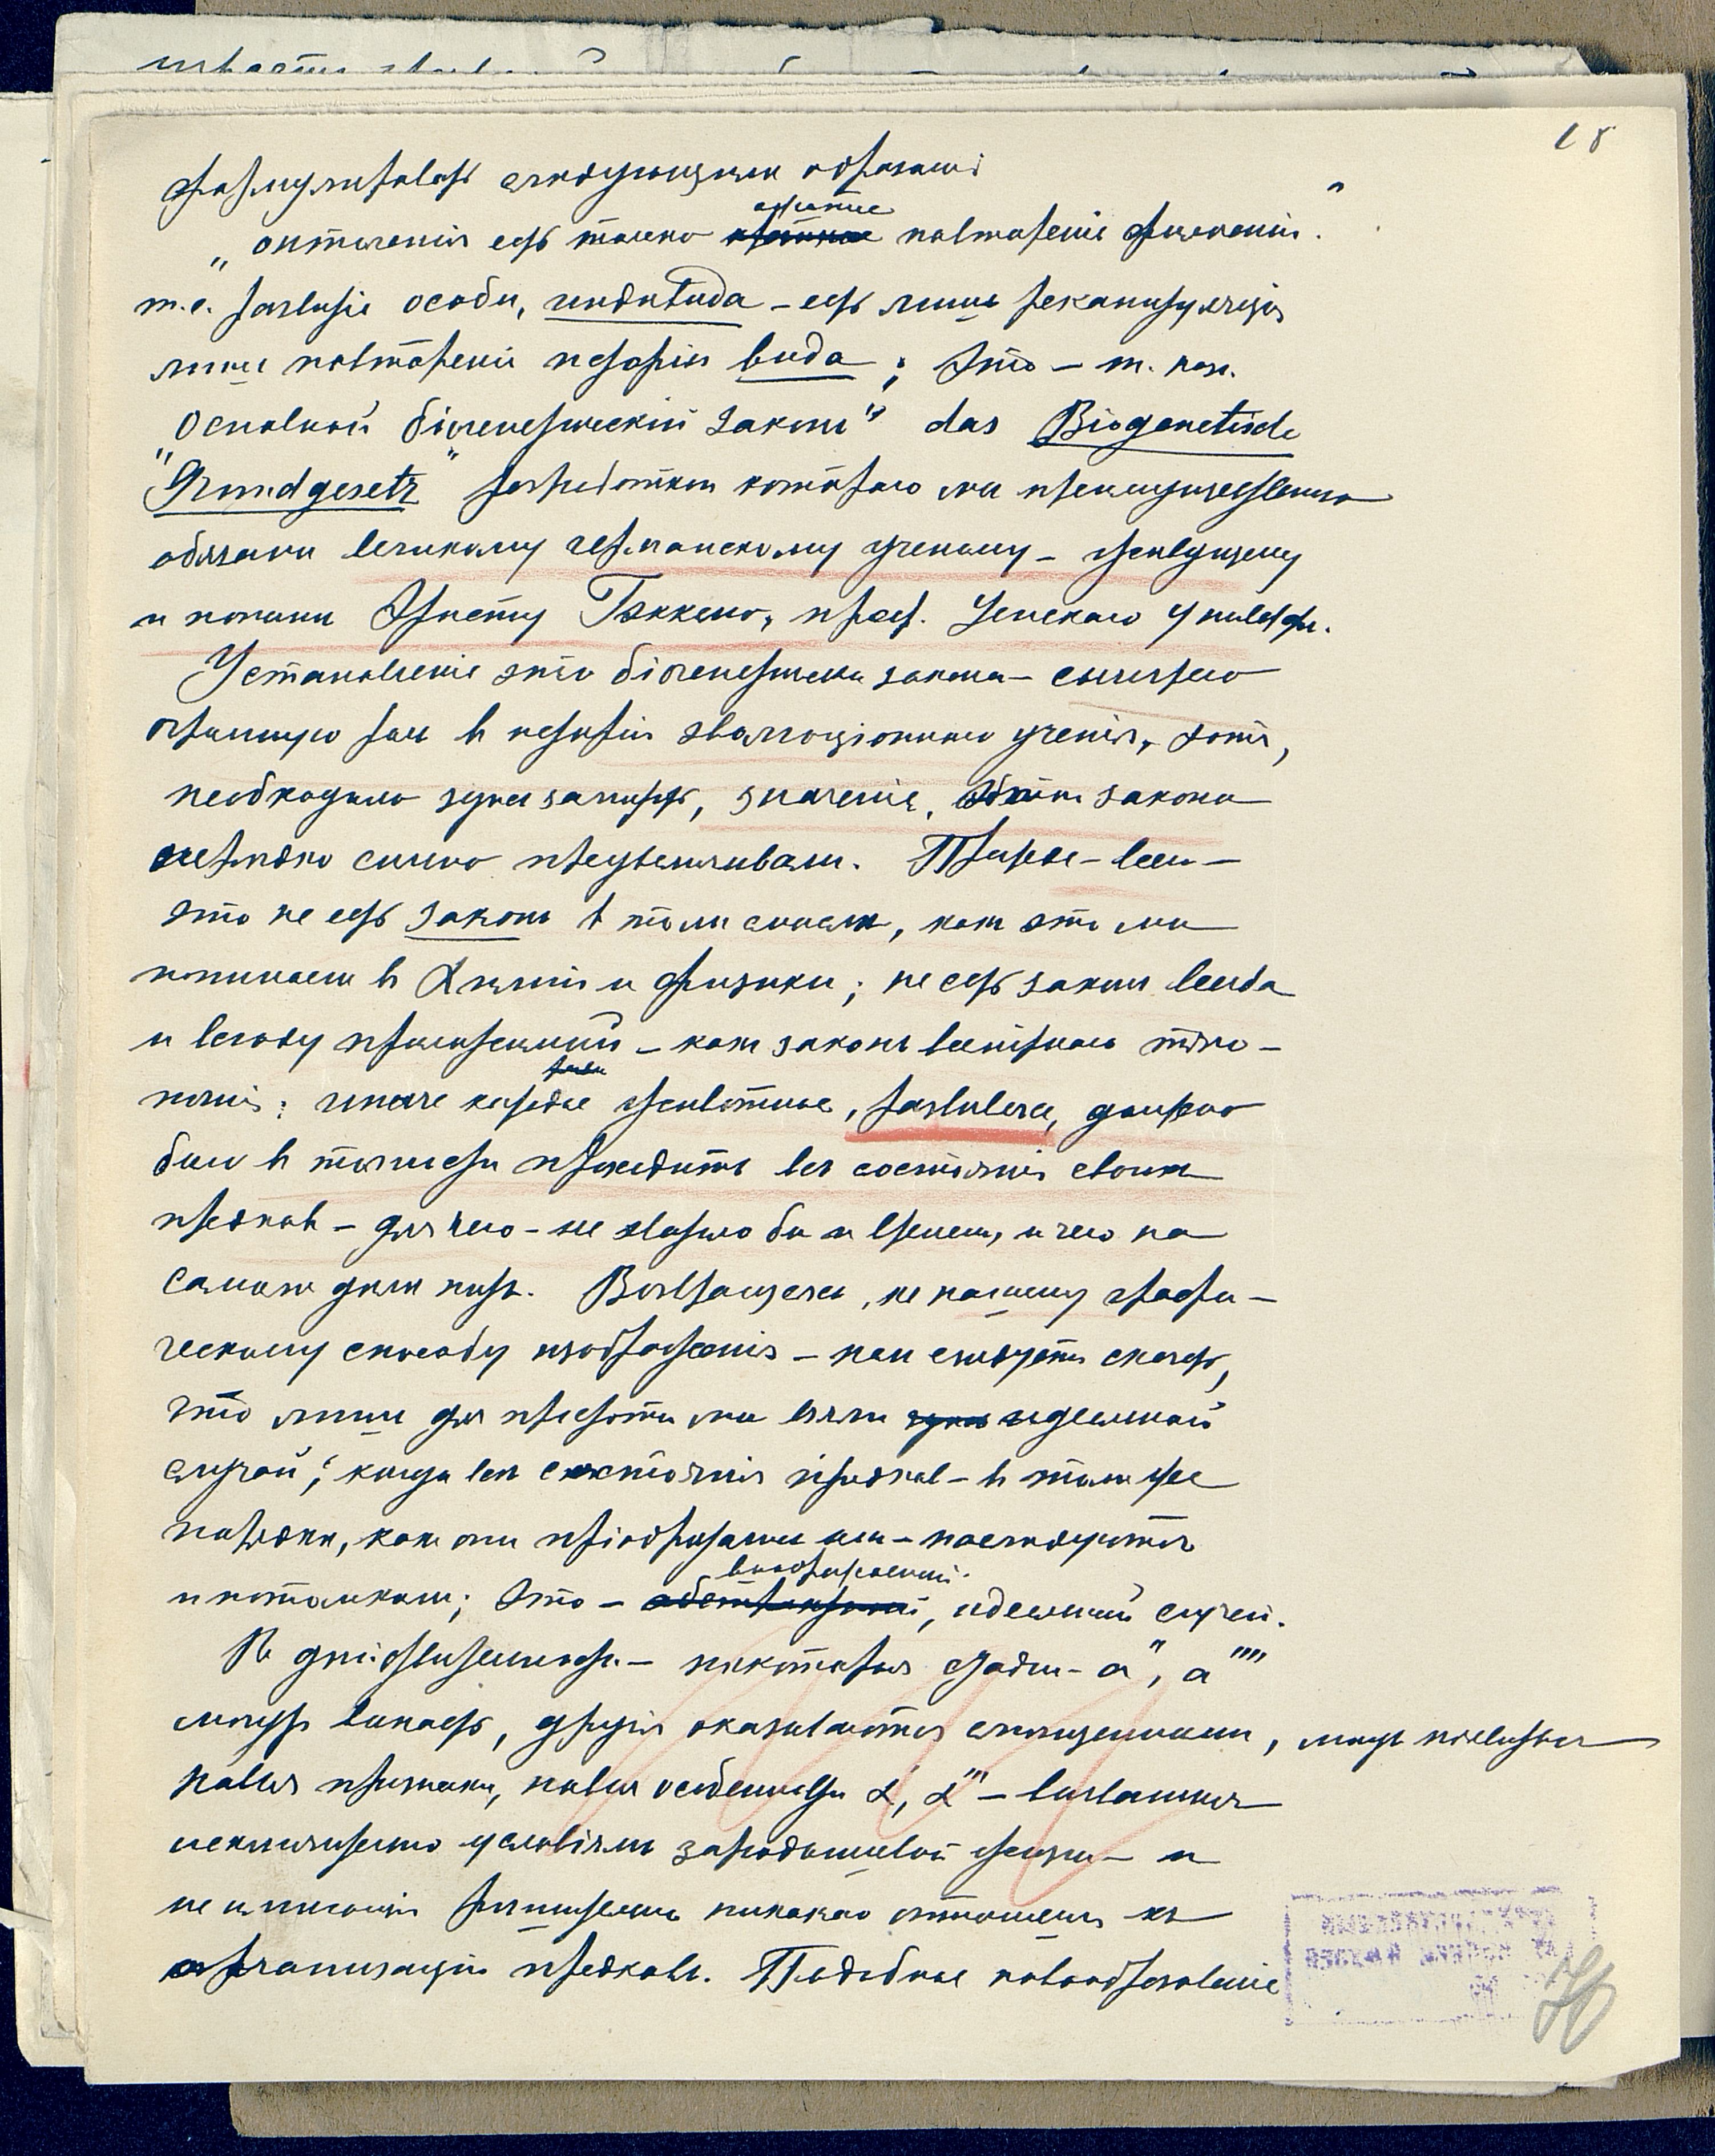 18
формулировать слѣдующимъ образомъ
„онтогенія есть только краткое повторенiе филогенiи."
т.е. развитiе особи, индивида – есть лишь рекапитуляцiя
лишь повторенiе исторiи вида; Это – т. наз.
„Основной бiогенетическiй законъ" das Biogenetische
"Grundgesetz" разработкой котораго мы преимущественно
обязаны великому германскому ученому – живущему
и понынѣ Эрнсту Геккелю, проф. Iенскаго Универс.
Установленiе этого бiогенетическ. закона – сыграло
огромную роль въ исторiи эволюцiоннаго ученiя, хотя,
необходимо здѣсь замѣтить, значенiе этого закона
нерѣдко сильно преувеличивали. Прежде – всего –
это не есть законъ въ томъ смыслѣ, какъ это мы
понимаемъ въ Химiи и физикѣ; не есть законъ всегда
и всюду примѣнимый – какъ законъ всемiрнаго тяго-
тѣнiя; иначе каждое животное, развиваясь, должно
было въ точности проходить всѣ состоянiя своихъ
предковъ – для чего – не хватило бы и времени, и чего на
самомъ дѣлѣ нѣтъ. Возвращаясь къ нашему графи-
ческому способу изображенiя – намъ слѣдуетъ сказать,
что лишь для простоты мы взяли идеальный
случай; когда всѣ состоянiя предковъ – въ томъ же
порядкѣ, какъ они прiобрѣтались ими – наслѣдуются
и потомкомъ; Это – воображаемый, идеальный случай.
Въ дѣйствительности – нѣкоторыя стадiи – a'', a''''
могутъ выпасть, другiя оказываются смѣщенными, могутъ появиться
новые признаки, новыя особенности α', α''' – вызванныя
исключительно условiями зародышевой жизни – и
не имѣющiя рѣшительно никакого отношенiя къ
организацiи предковъ. Подобное новообразованiе